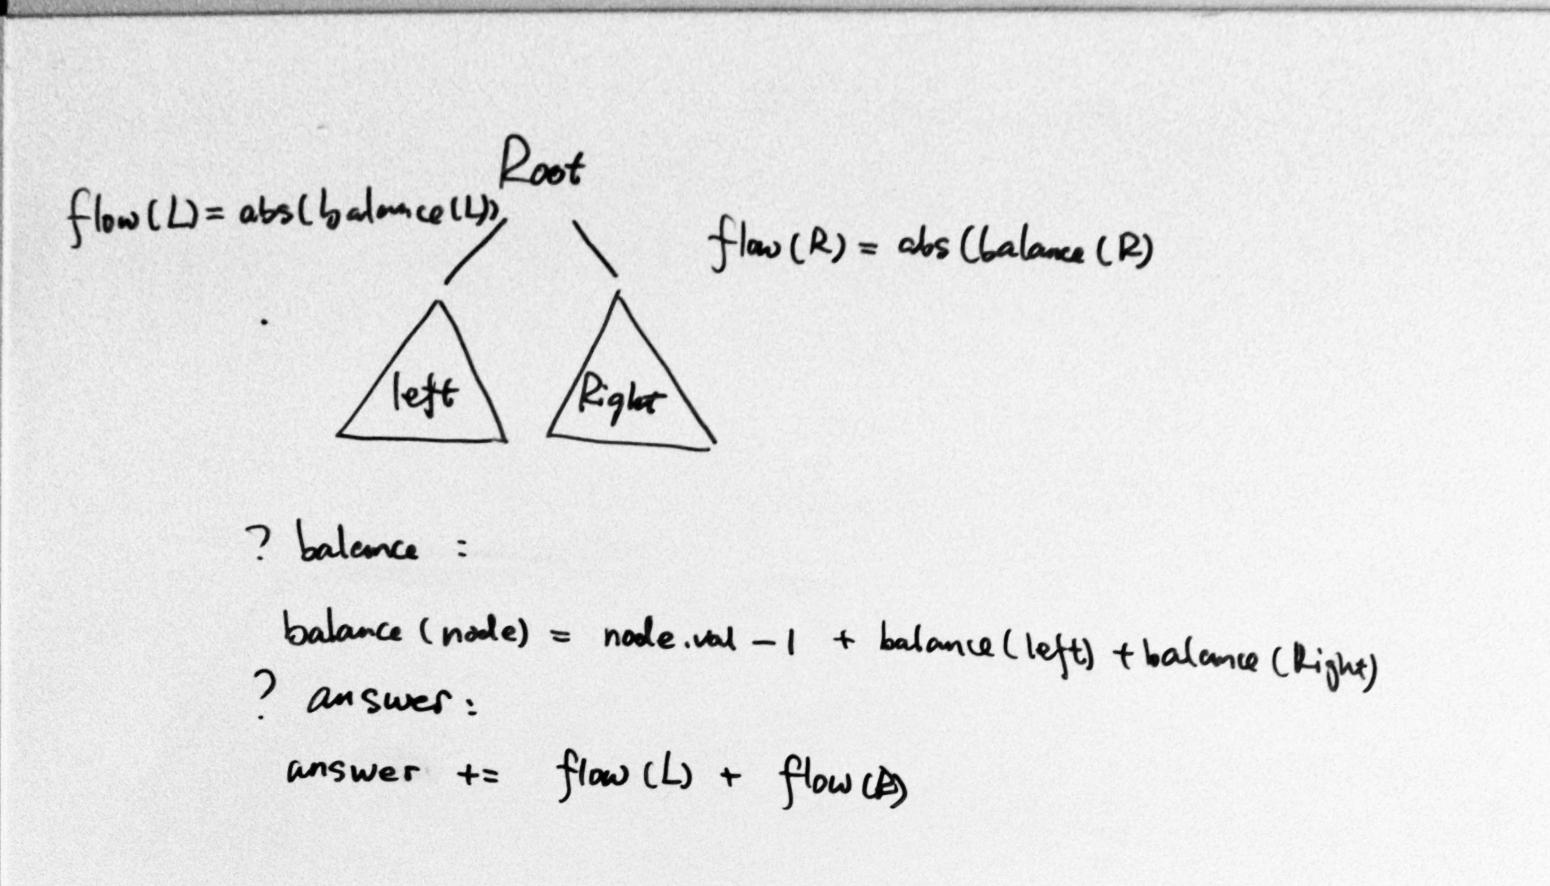 Root
flow(L) = abs(balance(L))
flow(R) = abs(balance(R)
left
Right
? balance :
balance(node) = node.val - 1 + balance(left) + balance(Right)
? answer :
answer += flow(L) + flow(R)